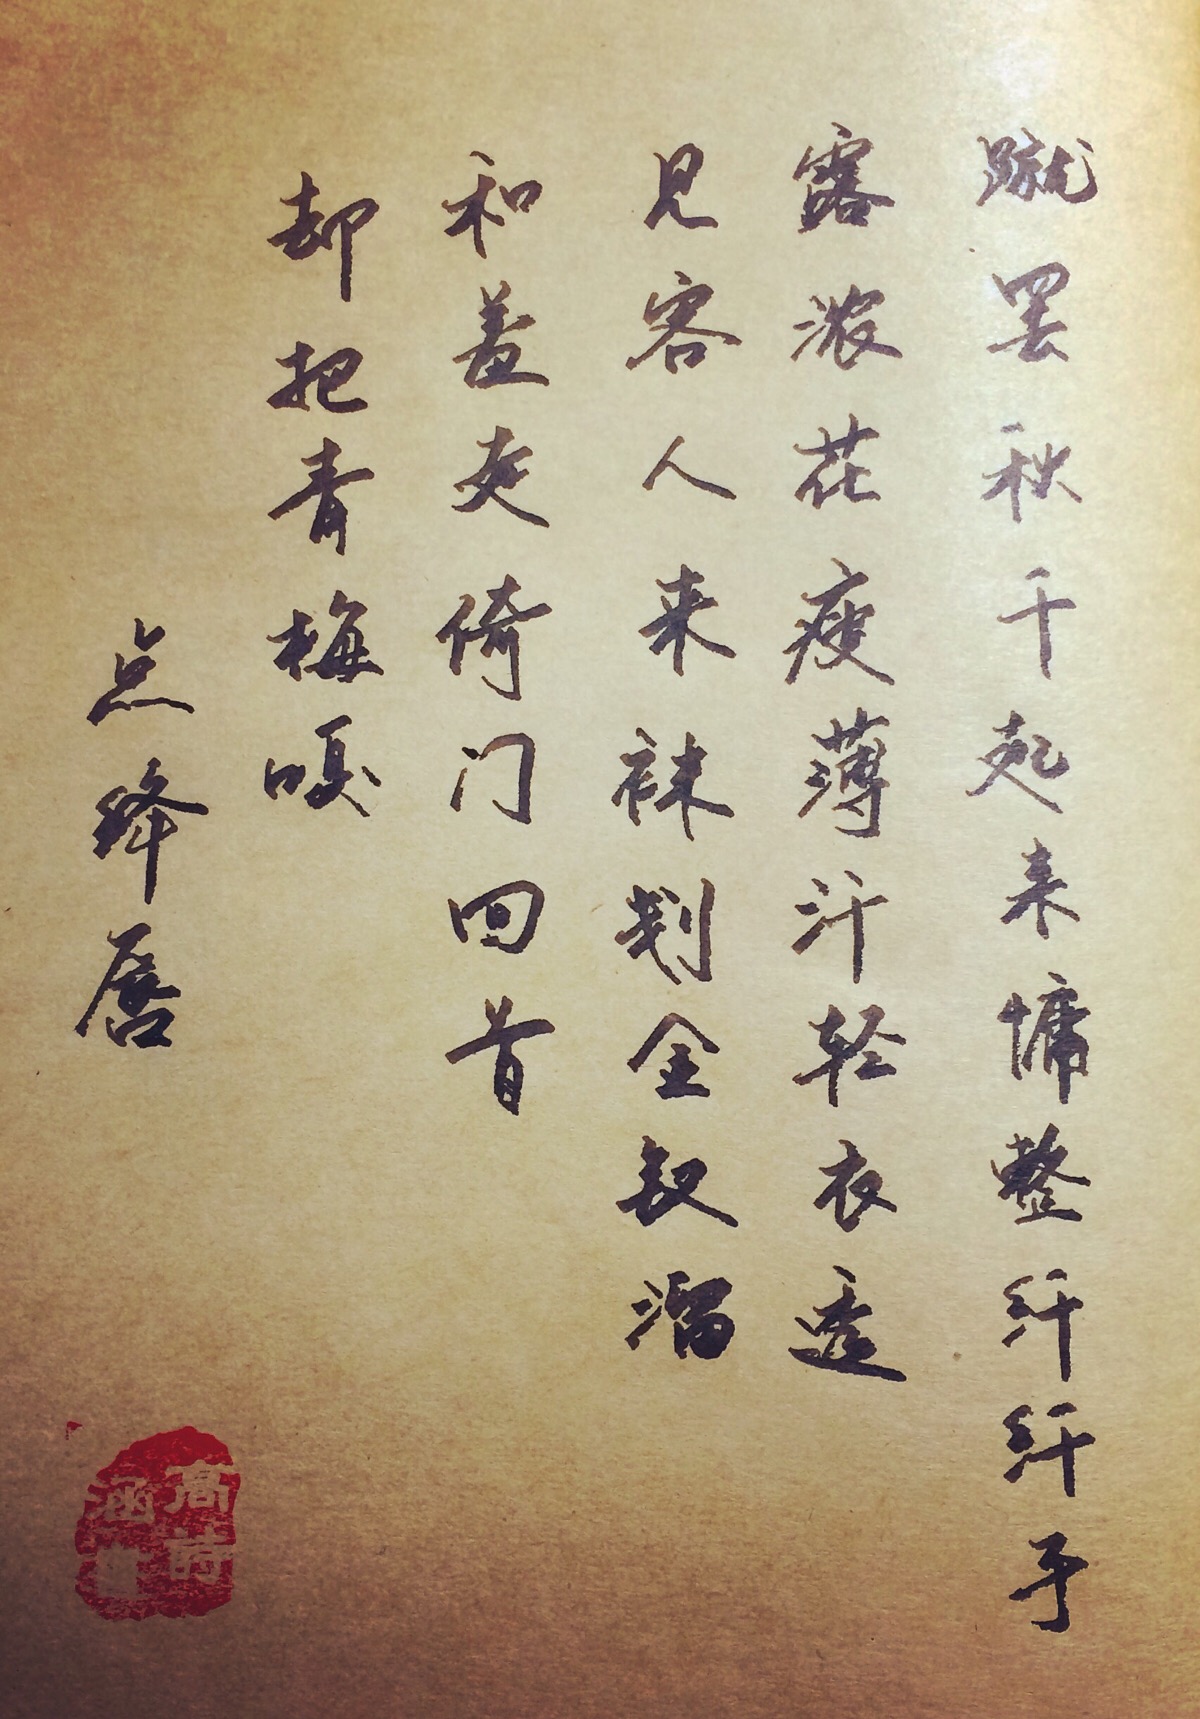 蹴罢秋千起来慵整纤纤手
露浓花瘦薄汗轻衣透
见客人来袜刬金钗溜
和羞走倚门回首
却把青梅嗅
点绛唇
高诗涵